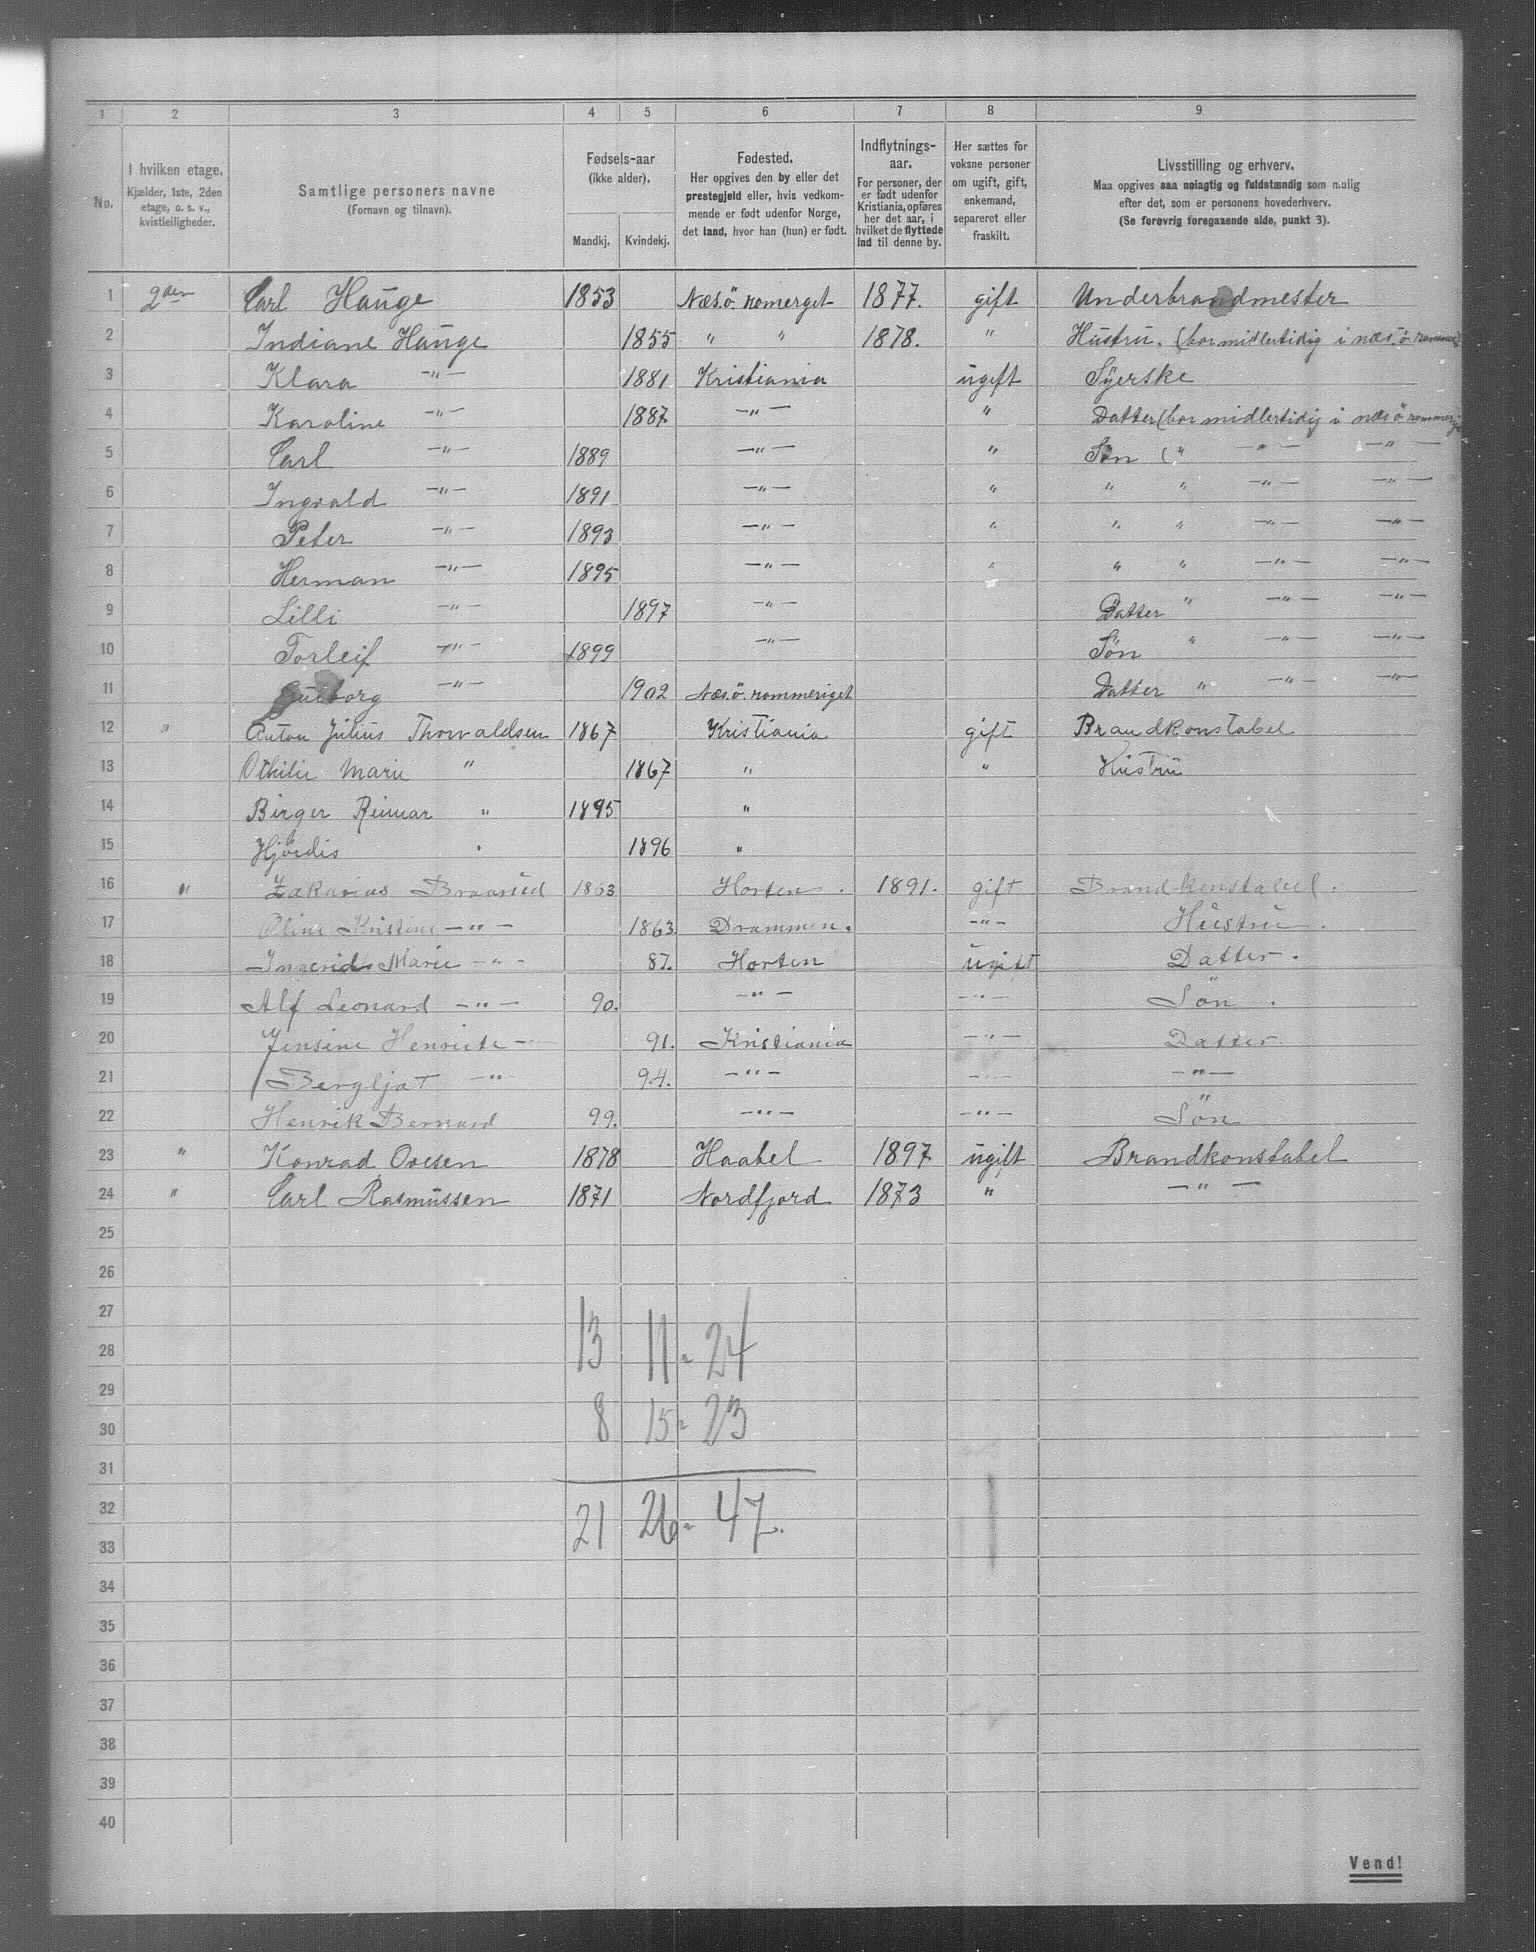 1 2 3 4 5 6 7 8 9
No. I hvilken etage. Kjælder, 1ste, 2den etage, o. s. v., kvistleiligheder. Samtlige personers navne (Fornavn og tilnavn). Fødsels-aar (ikke alder). Mandkj. Kvindekj. Fødested. Her opgives den by eller det prestegjeld eller, hvis vedkommende er født udenfor Norge, det land, hvor han (hun) er født. Indflytnings-aar. For personer, der er født udenfor Kristiania, opføres her det aar, i hvilket de flyttede ind til denne by. Her sættes for voksne personer om ugift, gift, enkemand, separeret eller fraskilt. Livsstilling og erhverv. Maa opgives saa nøiagtig og fuldstændig som mulig efter det, som er personens hovederhverv. (Se forøvrig foregaaende side, punkt 3).
1 2den Carl Hauge 1853 Næs. ö. romerget 1877. gift Underbrandmester
2 Indiane Hauge 1855 " " 1878. " Hustru. (bor midlertidig i næs. ö. romme)
3 Klara —"— 1881 Kristiania ugift Syerske
4 Karoline —"— 1887 —"— " Datter (bor midlertidig i næs ö rommerge
5 Carl —"— 1889 —"— " Søn (" —"— —"—
6 Ingvald —"— 1891 —"— " " " —"— —"—
7 Peter —"— 1893 —"— " " " —"— —"—
8 Herman —"— 1895 —"— " " " —"— —"—
9 Lilli —"— 1897 —"— Datter " —"— —"—
10 Torleif —"— 1899 —"— Søn " —"— —"—
11 —"— 1902 Næs. ö. rommeriget Datter " —"— —"—
12 " Anton Julius Thorvaldsen 1867 Kristiania gift Brandkonstabel
13 Othilie Marie " 1867 " " Hustru
14 Birger Reimar " 1895 "
15 Hjördis " 1896 "
16 " Zakarias Braarud 1863 Horten . 1891. gift Brandkonstabel.
17 Oline Kristine —"— 1863. Drammen. —"— Hustru.
18 Ingerid Marie —"— 87. Horten ugift Datter.
19 Alf Leonard —"— 90. —"— —"— Sön .
20 Jensine Henriete — 91. Kristiania —"— Datter
21 Bergljot —"— 94. —"— —"— —"—
22 Henrik Bernard 99. —"— —"— Sön
23 " Konrad Ovesen 1878 Haabel 1897 ugift Brandkonstabel
24 " Carl Rasmussen 1871 Nordfjord 1873 " —"—
25
26
27
28 13 11 = 24
29
30 8 15 = 23
31
32
33 21 26 = 47.
34
35
36
37
38
39
40
Vend!